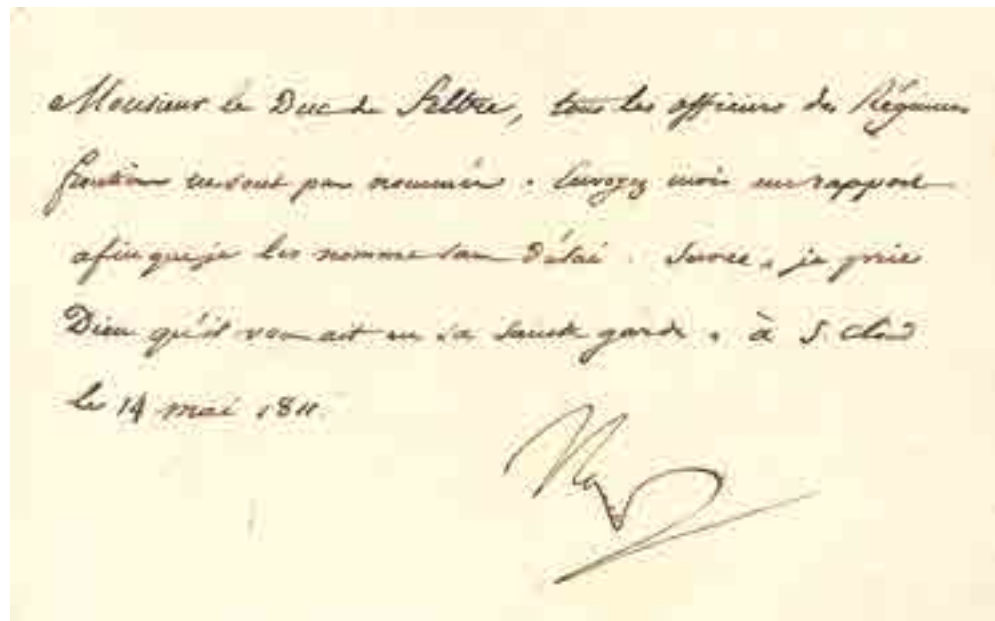 Monsieur le Duc de Feltre, tous les officiers des Régimens
ne sont pas nommés. Envoyez moi un rapport
afin que je les nomme sans délai. Sur ce, je prie
Dieu qu'il vous ait en sa sainte garde. à S. Cloud
le 14 mai 1811.
Nap